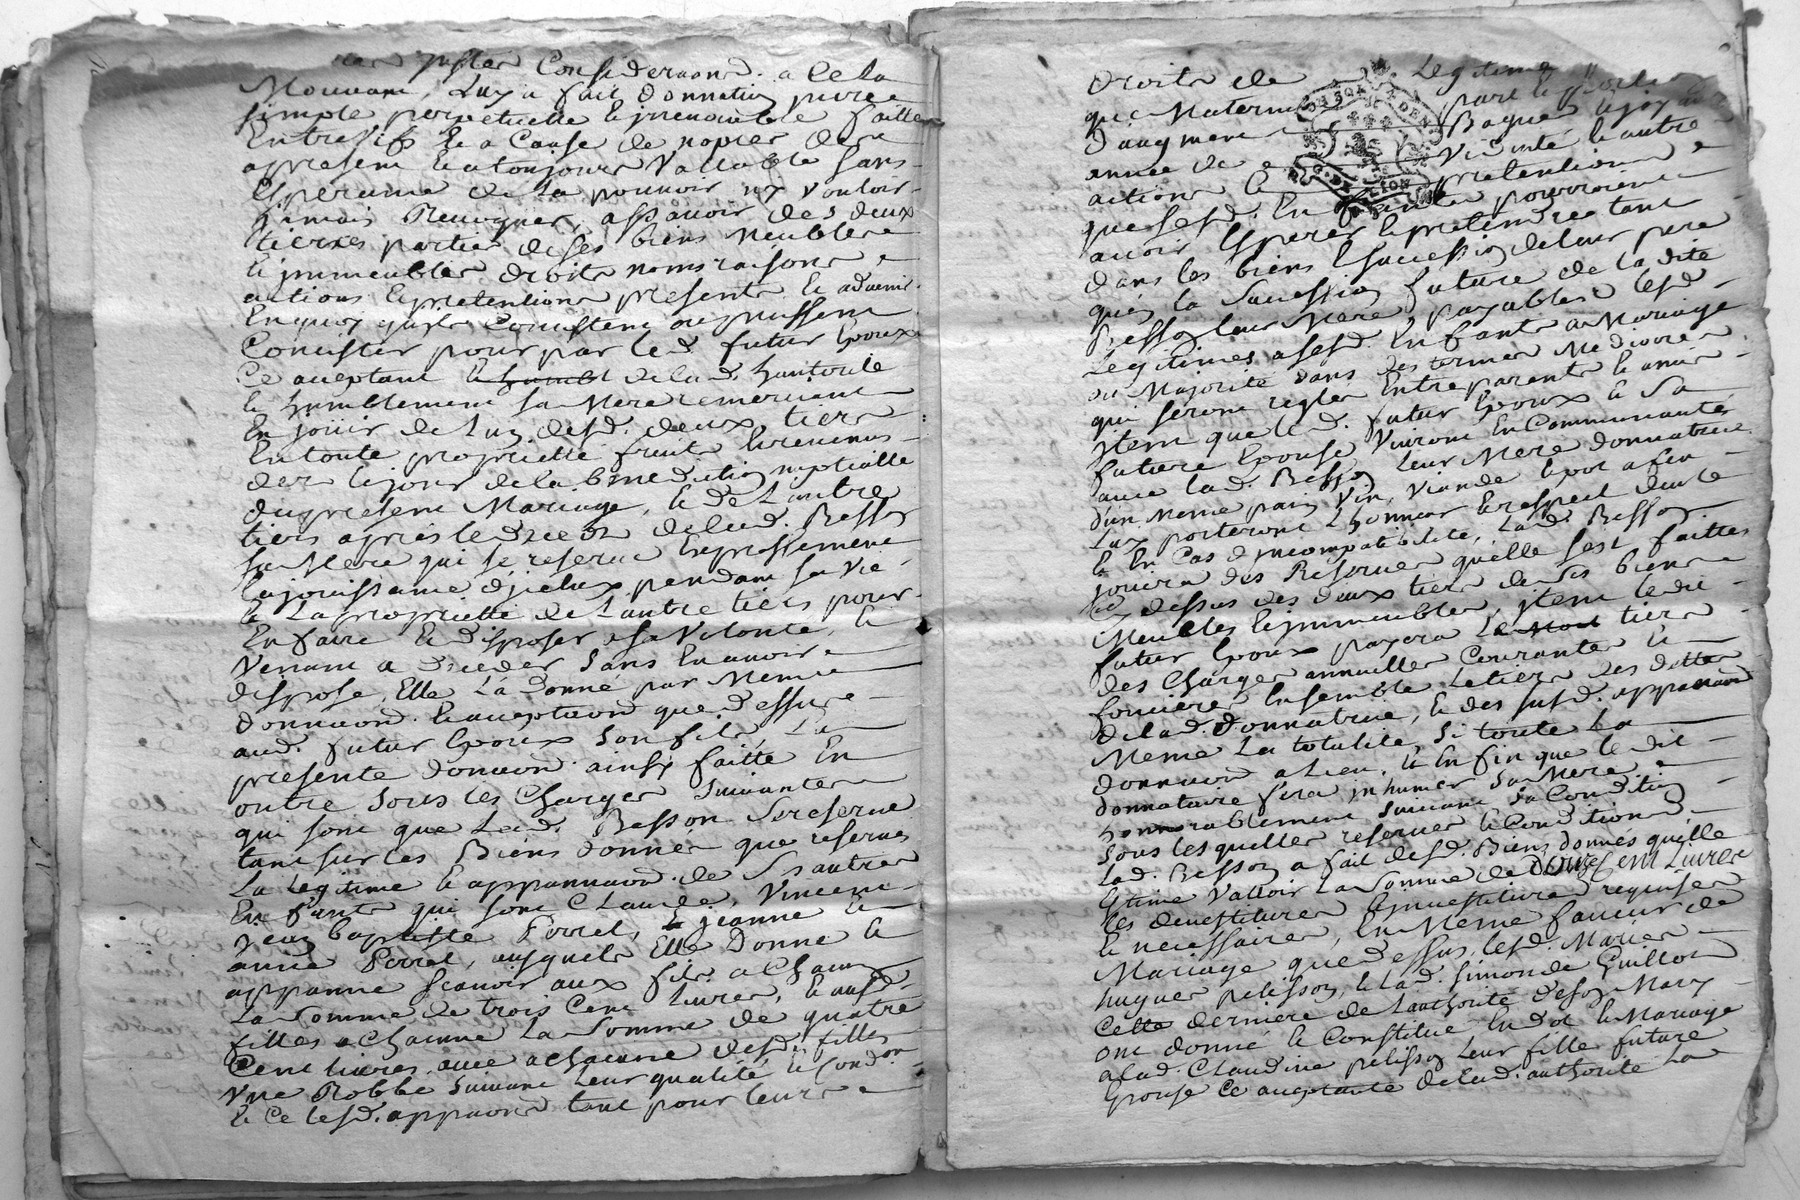 justes Considerations a Ce la
Mouvant, Luy a fait Donnation pure
simple perpetuelle & jrrevocable faitte
Entre vifs & a Cause de nopces des a
apresent & a toujours Vallable sans
Esperance de La pouvoir ny vouloir
jamais Revoquer, assavoir des deux
tierxes parties de ses biens Meubles
& jmmeubles droits noms raisons
actions & pretentions presents & advenir
En quoy qu'ils Concistent ou puissent
Concister pour par led. futur Epoux
Ce aceptant de lad. hautorité
& humblement sa Mere remerciant
En joüir de Luy desd. deux tiers
En toute proprietté fruits & revenus
des le jour de la benediction nuptialle
du present Mariage, & de L'autre
tiers apres le deces de lad. Besson
sa Mere qui se reserve Expressement
la jouissance d'jcelux pendant sa vie
& La proprietté de L'autre tiers pour
En faire & disposer a sa Volonté, &
Venant a deceder sans En avoir
disposé, Elle L'a donné par Meme
donnaon. & aceptaon que dessus
aud. futur Epoux son fils La
presente donaon. ainsy faitte En
outre sous les Charges suivantes
qui sont que Lad. Besson se reserve
tant sur les Biens donnés que reservés
La Legitime & appannaon. de Ses autres
Enfants qui sont Claude, Vincent
jean baptiste Forrel, & jeanne &
anne Forrel, ausquels Elle Donne &
appanne scavoir aux fils a Chacun
La Somme de trois Cent Livres, & ausd.
filles a Chacune La Somme de quatre
Cent livres avec a Chacune desd. filles
Vne Robbe suivant Leur qualité & Condon
& Ce lesd. appanaon tant pour leurs
droits de Legitime
que Maternels part
d'augment Bagues & joyaux
annee de Viduité & autres
actions & pretentions
que lesd. Enfants pourroient
avoir Esperer & pretendre tant
dans les biens & succession de leur pere
qu'en la Succession future de la dite
Besson leur Mere, payables lesd.
Legitimes a sesd. Enfants a Mariage
ou Majorité dans des termes Mediocres
qui seront reglés Entre parents & amis
jtem que led. futur Epoux & Sa
future Epouse Vivront En Communauté
avec lad. Besson Leur Mere donnatrice
d'un meme pain, Vin, Viande & pot a feu
Luy porteront L'honneur & respect deube
& En Cas d'jncompatibilité, Lad. Besson
jouira des Reserves qu'elle s'est faittes
cy dessus des deux tiers de Ses biens
Meubles & jmmeubles, jtem ledit
futur Epoux payera Le tiers
des Charges annuelles Courantes &
foncieres Ensemble Le tiers des dettes
de lad. Donnatrice, & des susd. appanaon
Meme La totalité, Si toute La
donnaon a Lieu, & Enfin que le dit
donnataire fera jnhumer Sa Mere
honnorablement suivant Sa Condition
Sous lesquelles reserves & Conditions
Lad. Besson a fait desd. Biens donnés qu'elle
Estime Valloir La Somme de Douze Cent Livres
les devestitures & jnvestitures requises
& necessaires, En Meme faveur de
Mariage que dessus, lesd. Mariés
hugues pelisson, & Lad. Simonde Guillot
Cette derniere de L'authorité de son Mary
ont donné & Constitué En dot & Mariage
a lad. Claudine pelisson Leur fille future
Epouse Ce aceptante de lad. authorité La